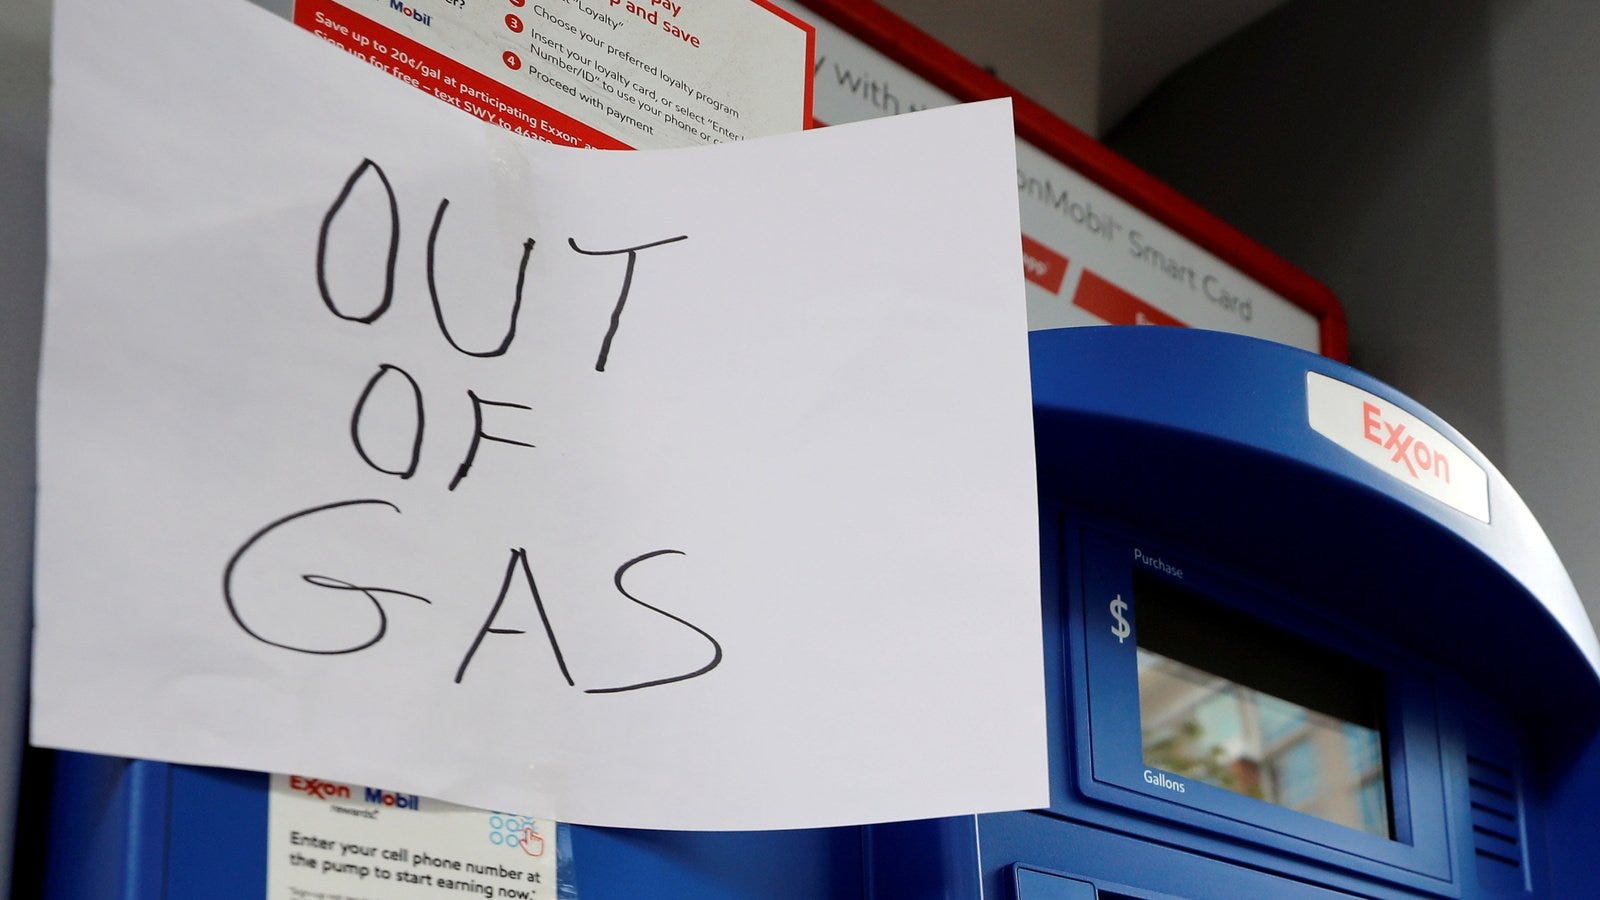 Mobil
pay
and save
"Loyalty"
3 Choose your preferred loyalty program
Insert your loyalty card, or select "Enter
Number/ID" to use your phone or
4 Proceed with payment
Save up to 20¢/gal at participating Exxon™
Sign up for free – text SWY to
with
Mobil™ Smart Card
OUT
OF
GAS
Exxon
Purchase
$
Gallons
Exxon Mobil
rewards+
Enter your cell phone number at
the pump to start earning now.*